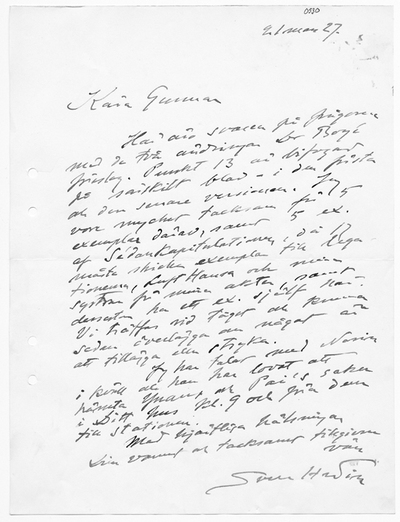 0330
21 mars 27.
Kära Gunnar
Här äro svaren på frågorna
med de två ändringar Dr Boyé
föreslog. Punkt 13 är bifogad
på särskilt blad – i den första
och den senare versionen. Jag
vore mycket tacksam få 5
exemplar därav, samt 5 ex.
af Sedankapitulationen, då jag
måste skicka exemplar till Rege-
tionen, Luft Hansa och mina
systrar från mina akter, samt
dessutom ha ett ex. själf här.
Vi träffas vid tåget och kunna
sedan överlägga om något är
att tillägga eller stryka.
Jag har talat med Norin
i kväll och han har lovat att
hämta och saker
i Ditt hus kl. 9 och från dem
till stationen.
Med hjärtliga hälsningar
Din vännen och tacksamt tillgivne
vän
Sven Hedin